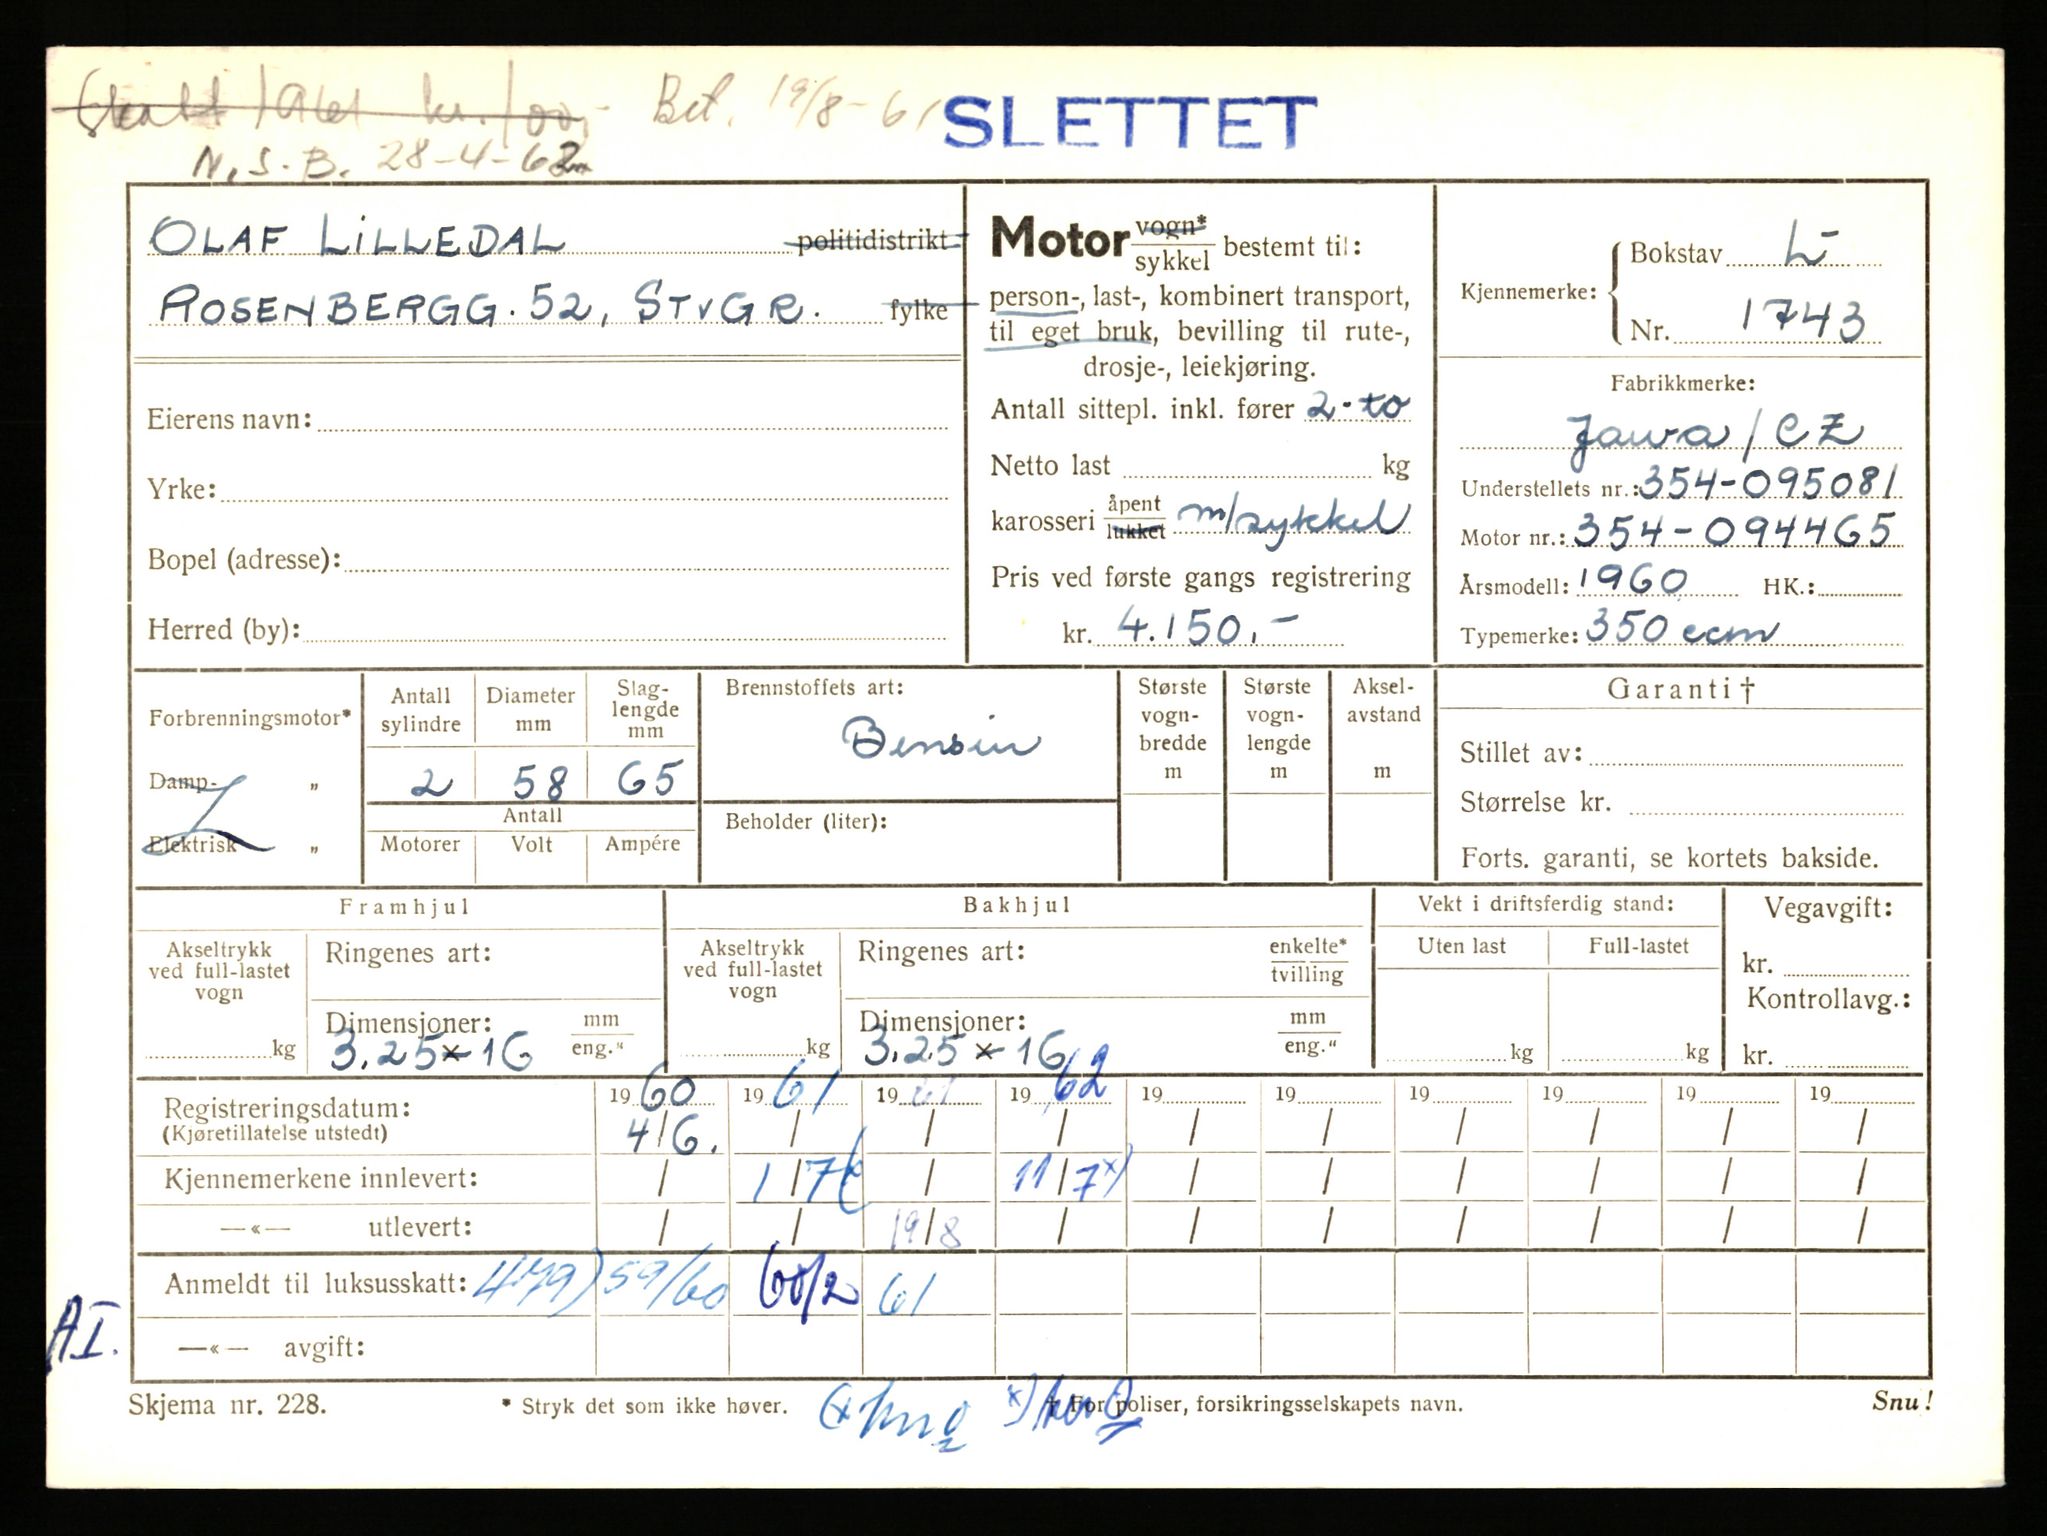 kr. 100,- Bet. 19/8-61 SLETTET
N.S.B. 28-4-62
OLAF LILLEDAL politidistrikt
ROSENBERGG. 52, STVGR. fylke
Eierens navn:
Yrke:
Bopel (adresse):
Herred (by):
Motor vogn* / sykkel bestemt til:
person-, last-, kombinert transport,
til eget bruk, bevilling til rute-,
drosje-, leiekjøring.
Antall sittepl. inkl. fører 2-to
Netto last kg
karosseri åpent / lukket m/sykkel
Pris ved første gangs registrering
kr. 4.150.-
Kjennemerke: Bokstav L-
Nr. 1743
Fabrikkmerke:
Jawa/CZ
Understellets nr.: 354-095081
Motor nr.: 354-094465
Årsmodell: 1960 HK.:
Typemerke: 350 ccm
Forbrenningsmotor*
Damp- „
Elektrisk „
Antall sylindre
Diameter mm
Slag-
lengde
mm
2 58 65
Antall
Motorer Volt Ampére
Brennstoffets art:
Bensin
Beholder (liter):
Største
vogn-
bredde
m
Største
vogn-
lengde
m
Aksel-
avstand
m
Garanti †
Stillet av:
Størrelse kr.
Forts. garanti, se kortets bakside.
Framhjul
Akseltrykk
ved full-lastet
vogn
kg
Ringenes art:
Dimensjoner: mm / eng."
3.25 x 16
Bakhjul
Akseltrykk
ved full-lastet
vogn
kg
Ringenes art: enkelte* / tvilling
Dimensjoner: mm / eng."
3.25 x 16
Vekt i driftsferdig stand:
Uten last Full-lastet
kg kg
Vegavgift:
kr.
Kontrollavg.:
kr.
Registreringsdatum: 1960 1961 1961 1962 19 19 19 19 19 19
(Kjøretillatelse utstedt) 4/6. / / / / / / / / /
Kjennemerkene innlevert: / 1/7 / 11/7 x) / / / / / /
—«— utlevert: / / 19/8 / / / / / / /
Anmeldt til luksusskatt: 479) 59/60 60/2 61
AI.
—«— avgift:
Skjema nr. 228. * Stryk det som ikke høver. † For poliser, forsikringsselskapets navn. Snu!